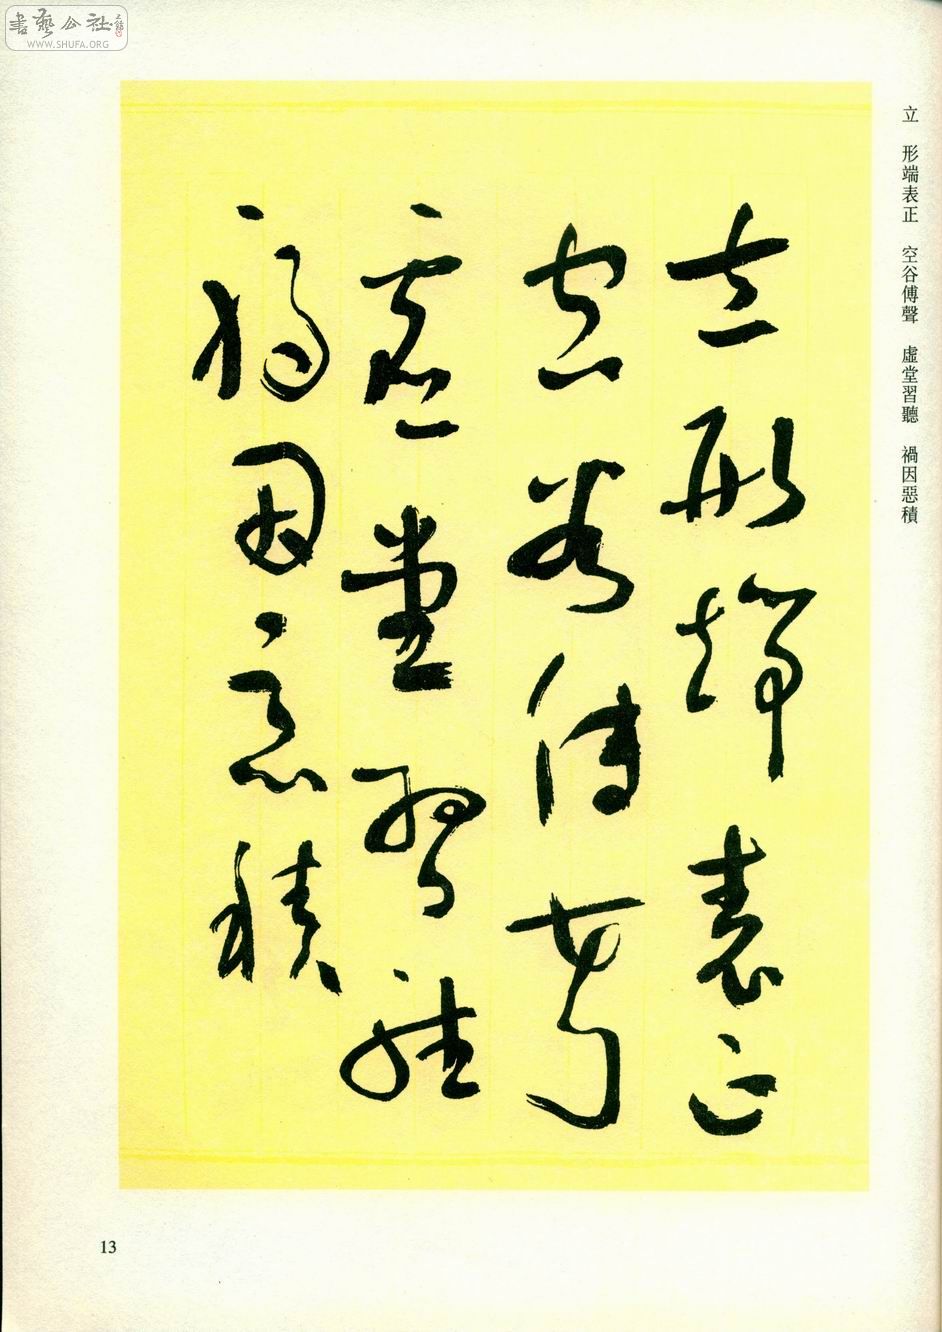 書藝公社
WWW.SHUFA.ORG
立　形端表正　空谷傅聲　虛堂習聽　禍因惡積
立形端表正
空谷傳聲
虛堂習聽
禍因惡積
13